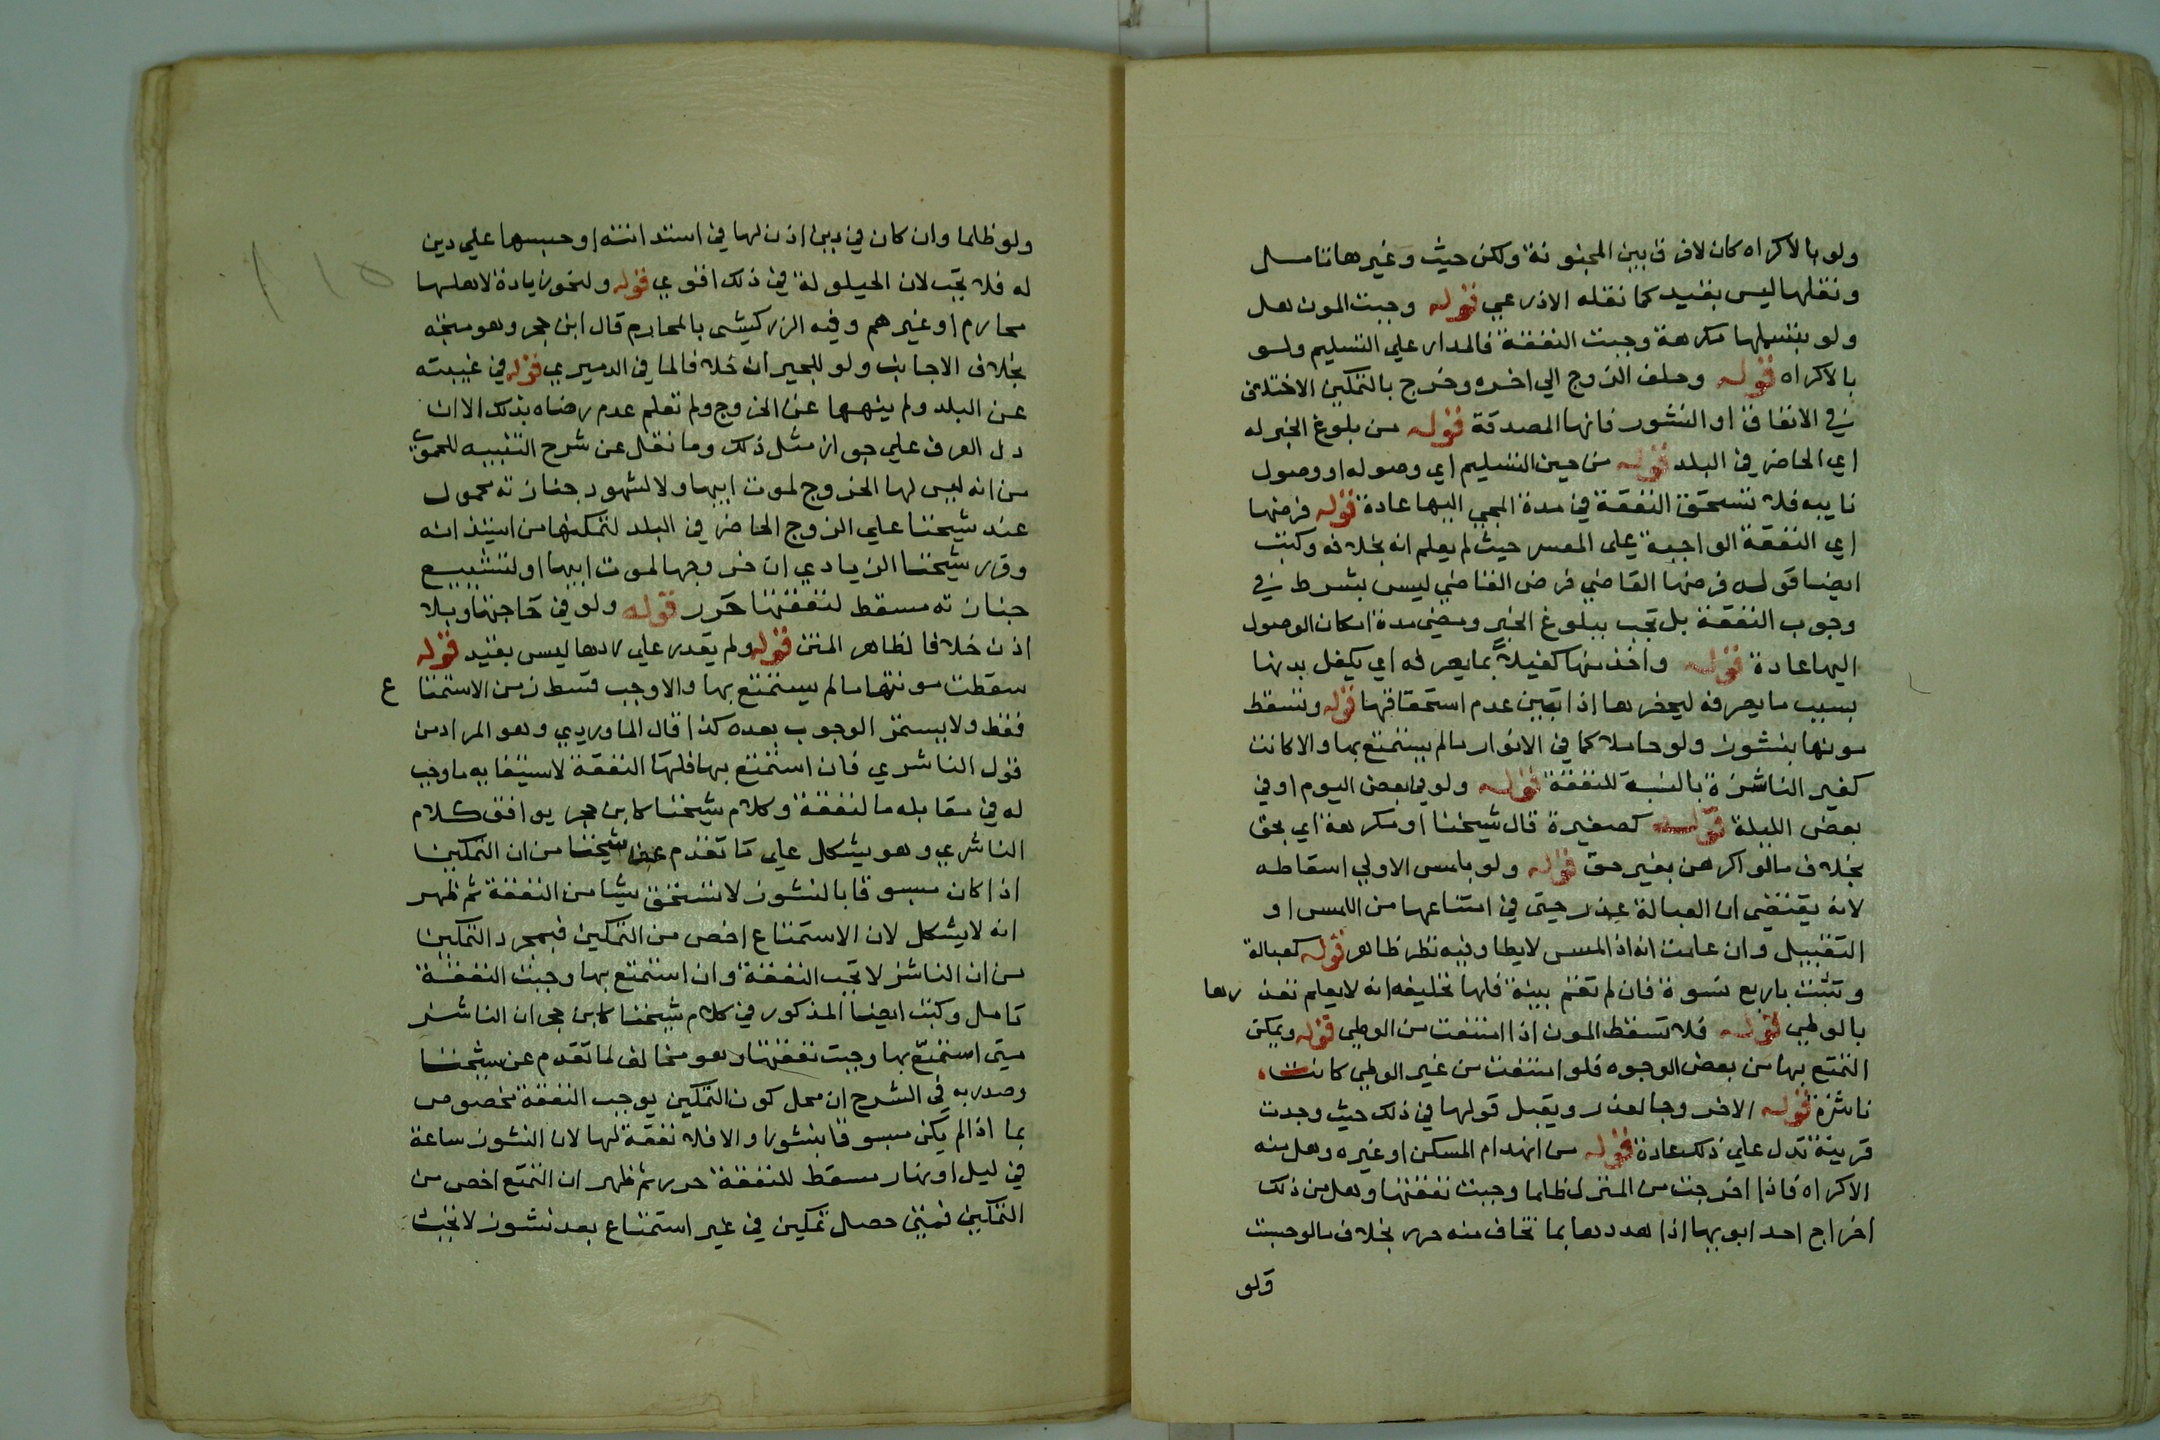 ولو بالاكراه كان لا فرق بين المجنونة ولكن حيث وغيرها تامل
ونقلها ليس بقيد كما نقله الاذرعي قوله وجبت المون هل
ولو بتسليمها مكرهة وجبت النفقة فالمدار علي التسليم ولو
بالاكراه قوله وحلف الزوج الي اخره وخرج بالتمكين الاختلاف
في الانفاق او النشوز فانها المصدقة قوله من بلوغ الخبر له
اي الحاضر في البلد قوله من حين التسليم اي وصوله او وصول
نايبه فلا تستحق النفقة في مدة المجي اليها عادة قوله فرضها
اي النفقة الواجبة على المعسر حيث لم يعلم انه بخلافه وكتب
ايضا قوله فرضها القاضي فرض القاضي ليس بشرط في
وجوب النفقة بل تجب ببلوغ الخبر ومضي مدة امكان الوصول
اليها عادة قوله واخذ منها كفيلا بما يصرفه اي يكفل بدنها
بسبب ما يصرفه ليحضرها اذا تبين عدم استحقاقها قوله وتسقط
مونها بنشوز ولو حاملا كما في الانوار مالم يستمتع بها والا كانت
كغير الناشزة بالنسبة للنفقة قوله ولو في بعض اليوم او في
بعض الليلة قوله كصغيرة قال شيخنا او مكرهة اي بحق
بخلاف مالو اكرهن بغير حق قوله ولو بلمس الاولي اسقاطه
لانه يقتضي ان العبالة عذر حيتى في امتناعها من اللمس او
التقبيل وان علمت انه اذا لمس لا يطا وفيه نظر ظاهر قوله كعبالة
وتثبت باربع نسوة فان لم تقم بينة فلها تحليفه انه لا يعلم تضررها
بالوطي قوله فلا تسقط المون اذا امتنعت من الوطي قوله ويمكن
التمتع بها من بعض الوجوه فلو امتنعت من غير الوطي كانت
ناشزة قوله الا خروجا لعذر ويقبل قولها في ذلك حيث وجدت
قرينة تدل علي ذلك عادة قوله من انهدام المسكن او غيره وهل منه
الاكراه فاذا اخرجت من المنزل ظلما وجبت نفقتها وهل من ذلك
اخراج احد ابويها اذا هددها بما تخاف منه حرر بخلاف مالو حبست
ولو
ولو ظلما وان كان في دين اذن لها في استدانته او حبسها علي دين
له فلا تجب لان الحيلولة في ذلك اقوي قوله ولنحو زيادة لاهلها
محارم او غيرهم وقيده الزركشي بالمحارم قال ابن حجر وهو متجه
بخلاف الاجانب ولو للجيران خلافا لما في الدميري قوله في غيبته
عن البلد ولم ينهها عن الخروج ولم تعلم عدم رضاه بذلك الا ان
دل العرف علي جواز مثل ذلك وما نقل عن شرح التنبيه للحموي
من انه ليس لها الخروج لموت ابيها ولا لشهود جنازته محمول
عند شيخنا علي الزوج الحاضر في البلد لتمكنها من استيذانه
وقرر شيخنا الزيادي ان خروجها لموت ابيها او لتشييع
جنازته مسقط لنفقتها حرر قوله ولو في حاجتها وبلا
اذن خلافا لظاهر المتن قوله ولم يقدر علي ردها ليس بقيد قوله
سقطت مونتها مالم يستمتع بها والا وجب قسط زمن الاستمتاع
فقط ولا يستمر الوجوب بعده كذا قال الماوردي وهو المراد من
قول الناشري فان استمتع بها فلها النفقة لاستيفايه ما وجب
له في مقابله ما لنفقة وكلام شيخنا كابن حجر يوافق كلام
الناشري وهو يشكل علي ما تقدم عن شيخنا من ان التمكين
اذا كان مسبوقا بالنشوز لا تستحق شيا من النفقة ثم ظهر
انه لا يشكل لان الاستمتاع اخص من التمكين فبمجرد التمكين
من ان الناشز لا تجب النفقة وان استمتع بها وجبت النفقة
تامل وكتب ايضا المذكور في كلام شيخنا كابن حجر ان الناشز
متي استمتع بها وجبت نفقتها وهو مخالف لما تقدم عن شيخنا
وصدر به في الشرح ان محل كون التمكين يوجب النفقة مخصوص
بما اذا لم يكن مسبوقا بنشوز والا فلا نفقة لها لان النشوز ساعة
في ليل او نهار مسقط للنفقة حرر ثم ظهر ان التمتع اخص من
التمكين فمتي حصل تمكين في غير استمتاع بعد نشوز لا تجب